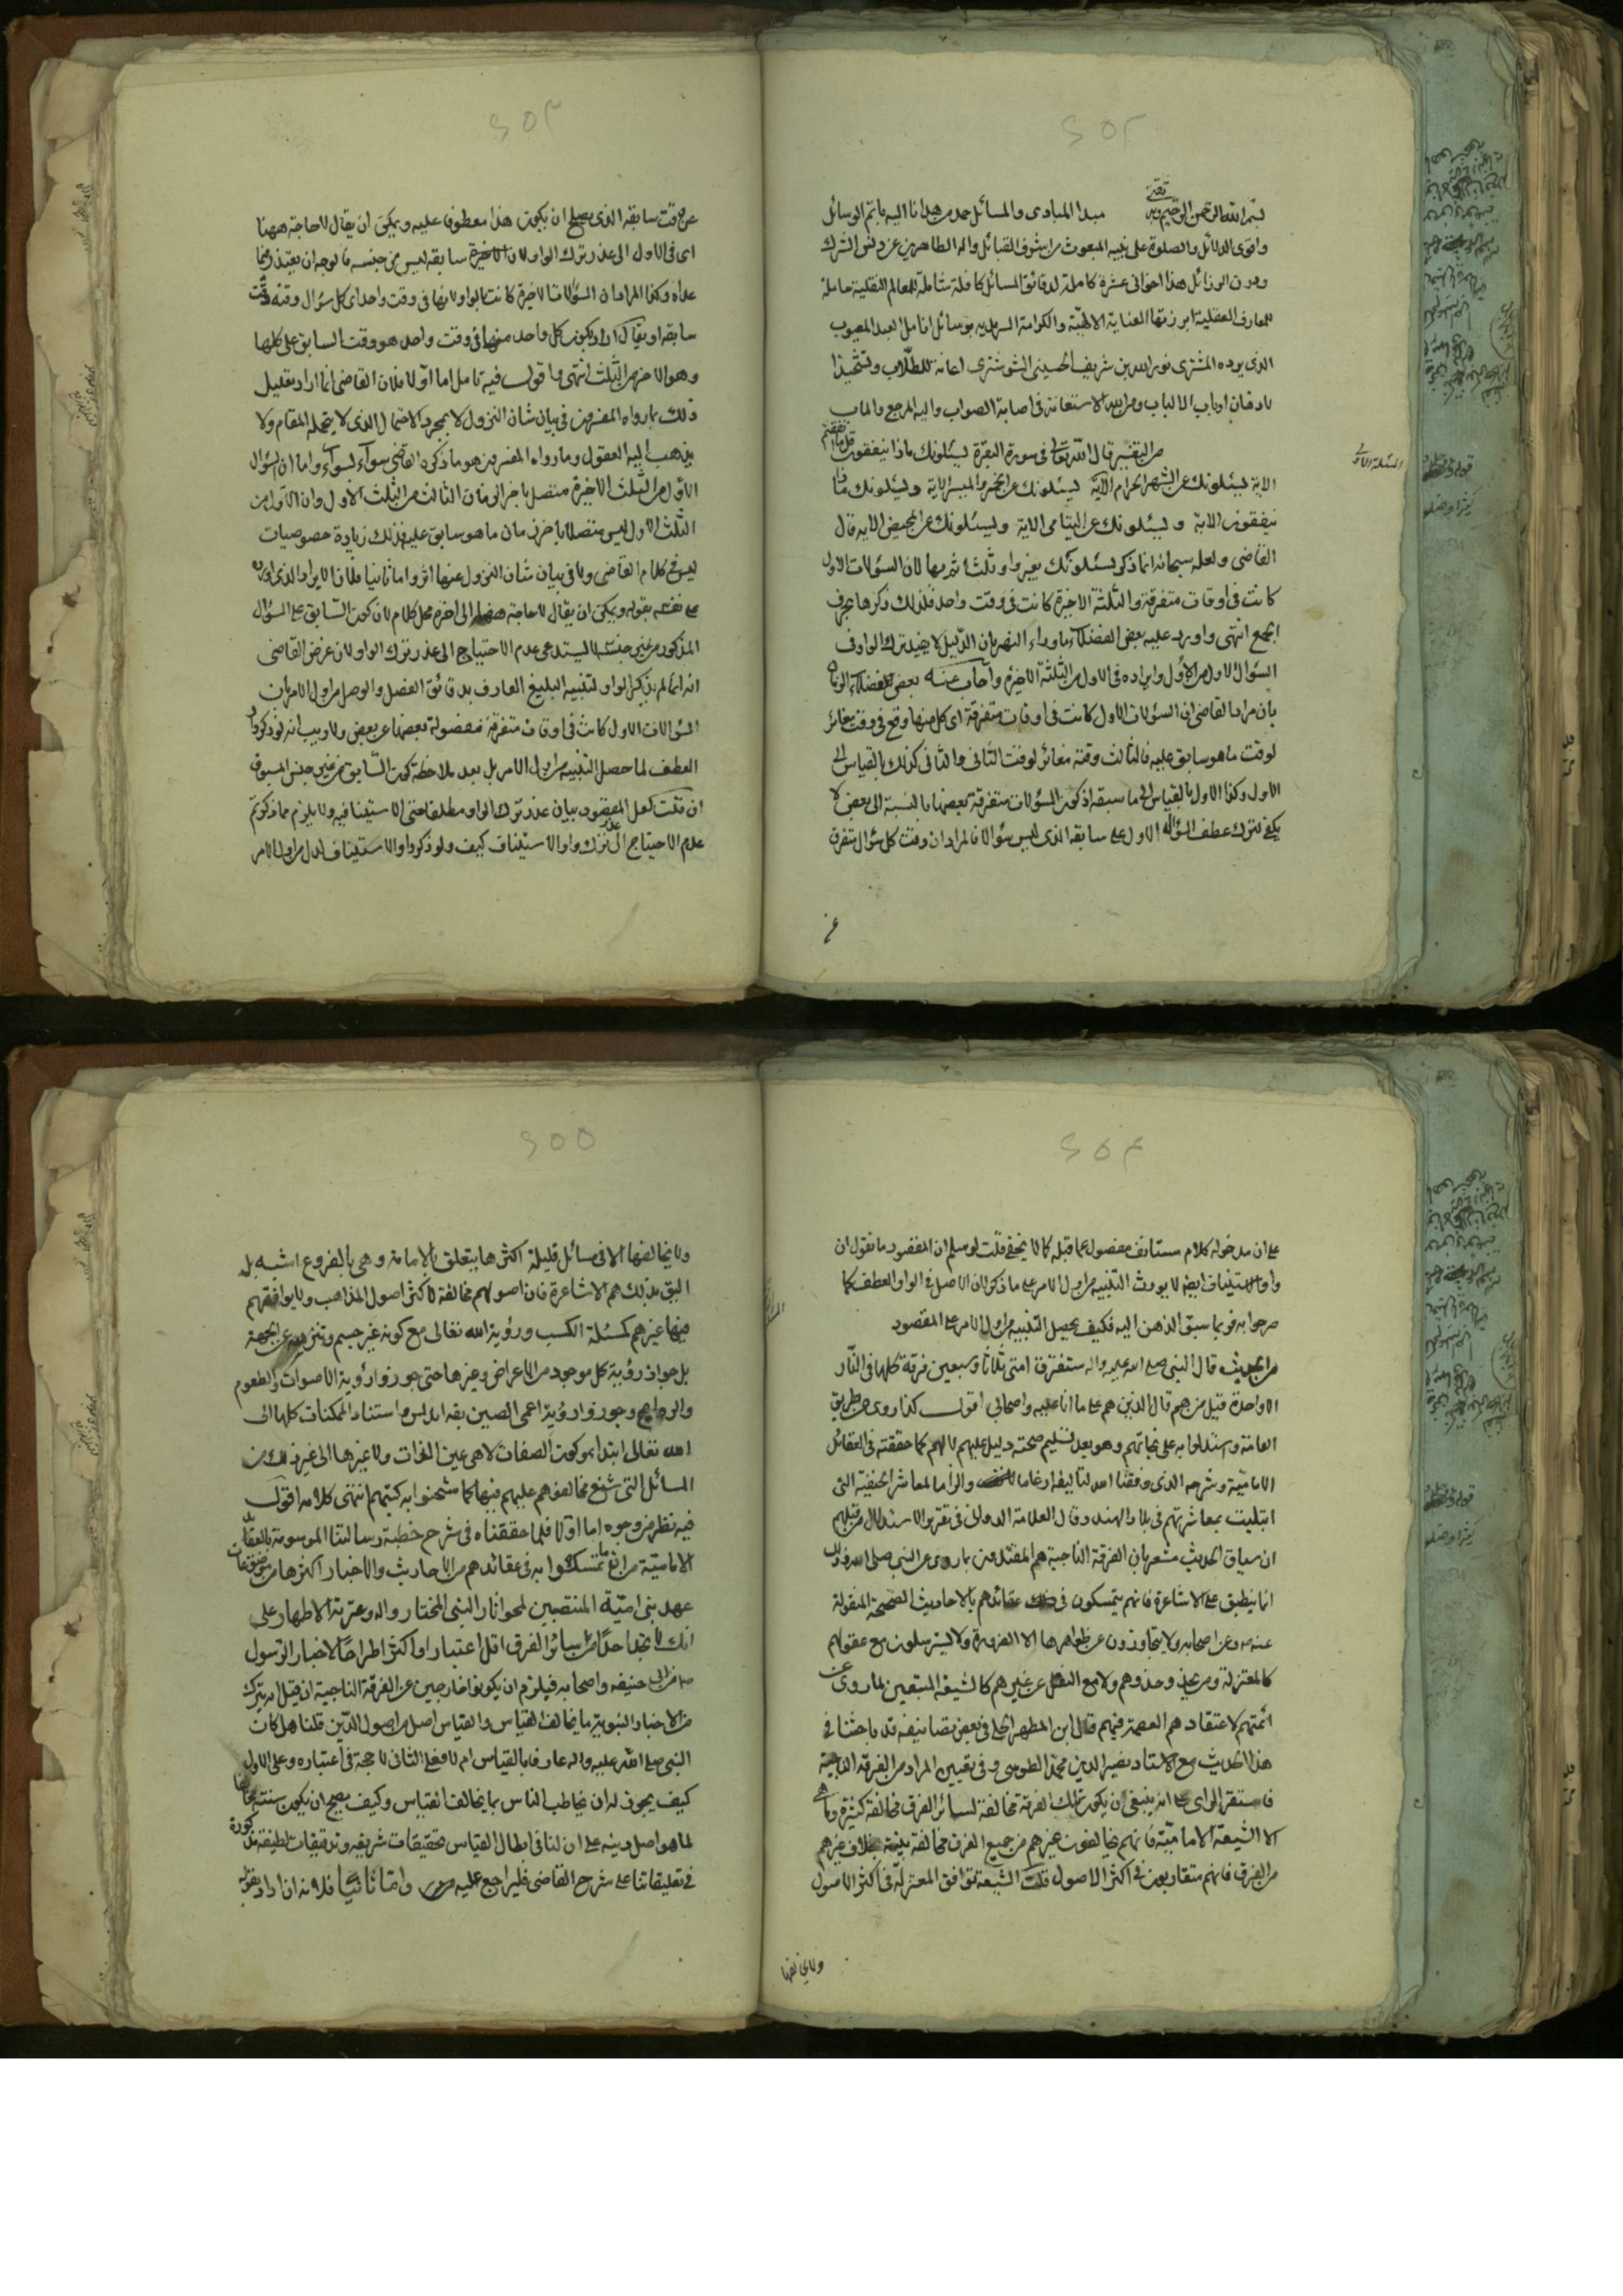 ٢٥٢
بسم الله الرحمن الرحيم وبه ثقتي مبدا المبادى والمسائل حمد من هدانا اليه باتم الوسائل
واقوى الدلائل والصلوة على نبيه المبعوث من اشرف القبائل واله الطاهرين عن دنس الشرك
ودرن الرذائل هذا اخوانى عشرة كاملة لدقائق المسائل كافلة شاملة للمعالم النقلية حاملة
للمعارف العقلية ابرزتها العناية الالهية والكرامة السرمدية بوسائل انامل العبد المعيوب
الذى يوده المشترى نور الله بن شريف الحسينى الشوشترى اعانة للطلاب وتشحيذا
لاذهان ارباب الالباب ومن الله الاستعانة فى اصابة الصواب واليه المرجع والماب
المسئلة الاولى
من التفسير قال الله تعالى فى سورة البقرة يسئلونك ماذا ينفقون قل ما انفقتم
الاية يسئلونك عن الشهر الحرام الآية يسئلونك عن الخمر والميسر الاية ويسئلونك ماذا
ينفقون الاية ويسئلونك عن اليتامى الاية ويسئلونك عن المحيض الاية قال
القاضى ولعله سبحانه انما ذكر يسئلونك بغير واو ثلثا ثم بها لان السؤلات الاول
كانت فى اوقات متفرقة والثلثة الاخيرة كانت فى وقت واحد فلذلك ذكرها بحرف
الجمع انتهى واورد عليه بعض الفضلاء بما وراء النهر بان الدليل لا يفيد ترك الواو فى
السؤال الاول من الاول وايراده فى الاول من الثلثة الاخيرة واجاب عنه بعض فضلاء الروم
بان مراد القاضى ان السؤلات الاول كانت فى اوقات متفرقة اى كل منها وقع فى وقت مغائر
لوقت ما هو سابق عليه فالثالث وقته مغائر لوقت الثانى والثانى كذلك بالقياس الى
الاول وكذا الاول بالقياس الى ما سبقه اذ كون السؤلات متفرقة بعضها بالنسبة الى بعض لا
يكفى لترك عطف السؤال الاول على سابقه الذى ليس سؤالا فالمراد ان وقت كل سؤال متفرق
عن
٢٥٣
عن وقت سابقه الذى يصلح ان يكون هذا معطوف عليه ويمكن ان يقال لا حاجة ههنا
اى فى الاول الى عذر ترك الواو لان الاخيرة سابقه ليس من جنسه فالوجه ان يعتذر فيما
عداه وكذا المراد ان السؤالات الاخيرة كانت بالواو لانها فى وقت واحد اى كل سؤال وقته وقت
سابقه او يقال اراد بكون كل واحد منها فى وقت واحد هو وقت السابق على كلها
وهو الاخر من الثلث انتهى واقول فيه تامل اما اولا فلان القاضى انما اراد تعليل
ذلك بما رواه المفسرون فى بيان شان النزول لا بمجرد الاحتمال الذى لا يتحمله المقام ولا
يذهب اليه العقول وما رواه المفسرون هو ما ذكره القاضى سواء بسواء واما ان السؤال
الاول من الثلث الاخيرة متصل باخر الزمان الثالث من الثلث الاول وان الاول من
الثلث الاول ليس متصلا باخر زمان ما هو سابق عليه فذلك زيادة خصوصيات
ليس فى كلام القاضى ولا فى بيان شان النزول عنها اثر واما ثانيا فلان الايراد الذى اورده
على نفسه بقوله ويمكن ان يقال لا حاجة ههنا الى اخره محل كلام لان كون السابق على السؤال
المذكور من غير جنسه لا يستدعى عدم الاحتياج الى عذر ترك الواو لان غرض القاضى
انه انما لم يذكر الواو لتنبيه البليغ العارف بدقائق الفصل والوصل من اول الامر بان
السؤالات الاول كانت فى اوقات متفرقة مفصولة بعضها عن بعض ولا ريب انه لو ذكر واو
العطف لما حصل التنبيه من اول الامر بل بعد ملاحظة كون السابق من غير جنس المسبوق
ان قلت لعل المقصود بيان عذر ترك الواو مطلقا حتى الاستينافية ولا يلزم مما ذكرتم
عدم الاحتياج الى عذر ترك واو الاستيناف كيف ولو ذكر واو الاستيناف لدل من اول الامر
٢٥٤
على ان مدخوله كلام مستانف مفصول عما قبله كما لا يخفى قلت لو سلم ان المقصود ما نقول ان
واو الاستيناف ايضا لا يورث التنبيه من اول الامر على ما ذكر لان الاصل فى الواو العطف كما
صرحوا به فربما سبق الذهن اليه فكيف يحصل التنبيه من اول الامر على المقصود
من الحديث قال النبى صلى الله عليه واله ستفترق امتى ثلاثا وسبعين فرقة كلها فى النار
الا واحدة قيل من هم قال الذين هم على ما انا عليه واصحابى اقول كذا روى من طريق
العامة واستدلوا به على نجاتهم وهو بعد تسليم صحته دليل عليهم لا لهم كما حققته فى العقائد
الامامية وشرحه الذى وفقنا الله لتاليفه ارغاما والزاما لمعاشر الحنفية التى
ابتليت بمعاشرتهم فى بلاد الهند وقال العلامة الدوانى فى تقرير الاستدلال من قبلهم
ان سياق الحديث مشعر بان الفرقة الناجية هم المقتدون بما روى عن النبى صلى الله وذلك
انما ينطبق على الاشاعرة فانهم يتمسكون فى عقائدهم بالاحاديث الصحيحة المنقولة
عنه ص وعن اصحابه ولا يتجاوزون عن ظواهرها الا لضرورة ولا يسترسلون مع عقولهم
كالمعتزلة ومن يحذو حذوهم ولا مع النقل عن غيرهم كالشيعة المتبعين لما روى عن
ائمتهم لاعتقادهم العصمة فيهم قال ابن المطهر الحلى فى بعض تصانيفه قد باحثنا فى
هذا الحديث مع الاستاد نصير الدين محمد الطوسى وفى تعيين المراد من الفرقة الناجية
فاستقر الراى على انه ينبغى ان يكون تلك الفرقة مخالفة لسائر الفرق مخالفة كثيرة وما هى
الا الشيعة الامامية فانهم يخالفون غيرهم من جميع الفرق مخالفة بينة بخلاف غيرهم
من الفرق فانهم متقاربون فى اكثر الاصول قلت الشيعة توافق المعتزلة فى اكثر الاصول
ولا يخالفها
٢٥٥
ولا يخالفها الا فى مسائل قليلة اكثرها يتعلق بالامامة وهى بالفروع اشبه بل
اليق بذلك هم الاشاعرة فان اصولهم مخالفة لاكثر اصول المذاهب ولا يوافقهم
فيها غيرهم كمسئلة الكسب ورؤية الله تعالى مع كونه غير جسم وتنزهه عن الجهة
بل جواز رؤية كل موجود من الاعراض وغيرها حتى جوزوا رؤية الاصوات والطعوم
والروايح وجوزوا رؤية اعمى الصين بقه اندلس واستناد الممكنات كلها الى
الله تعالى ابتداء وكون الصفات لا هى عين الذات ولا غيرها الى غير ذلك من
المسائل التى شنع مخالفوهم عليهم فيها كما شحنوا به كتبهم انتهى كلامه اقول
فيه نظر من وجوه اما اولا فلما حققناه فى شرح خطبة رسالتنا الموسومة بالعقائد
الامامية من انما تمسكوا به فى عقائدهم من الاحاديث والاخبار اكثرها من موضوعات
عهد بنى امية المنتصبين لمحو اثار النبى المختار واله وعترته الاطهار على
انك لا تجد احدا من سائر الفرق اقل اعتبارا واكثر اطراحا لاخبار الرسول
ص من ابى حنيفه واصحابه فيلزم ان يكونوا خارجين عن الفرقة الناجية ان قيل انه يترك
من الاخبار النبوية ما يخالف القياس والقياس اصل من اصول الدين قلنا هل كان
النبى صلى الله عليه واله عارفا بالقياس ام لا فعلى الثانى لا حجة فى اعتباره وعلى الاول
كيف يجوز له ان يخاطب الناس بما يخالف القياس وكيف يصح ان يكون سنته مخالفا
لما هو اصل دينه على ان لنا فى ابطال القياس تحقيقات شريفه وتدقيقات لطيفة مذكورة
فى تعليقاتنا على شرح القاضى فليراجع عليه واما ثانيا فلانه ان اراد بقوله